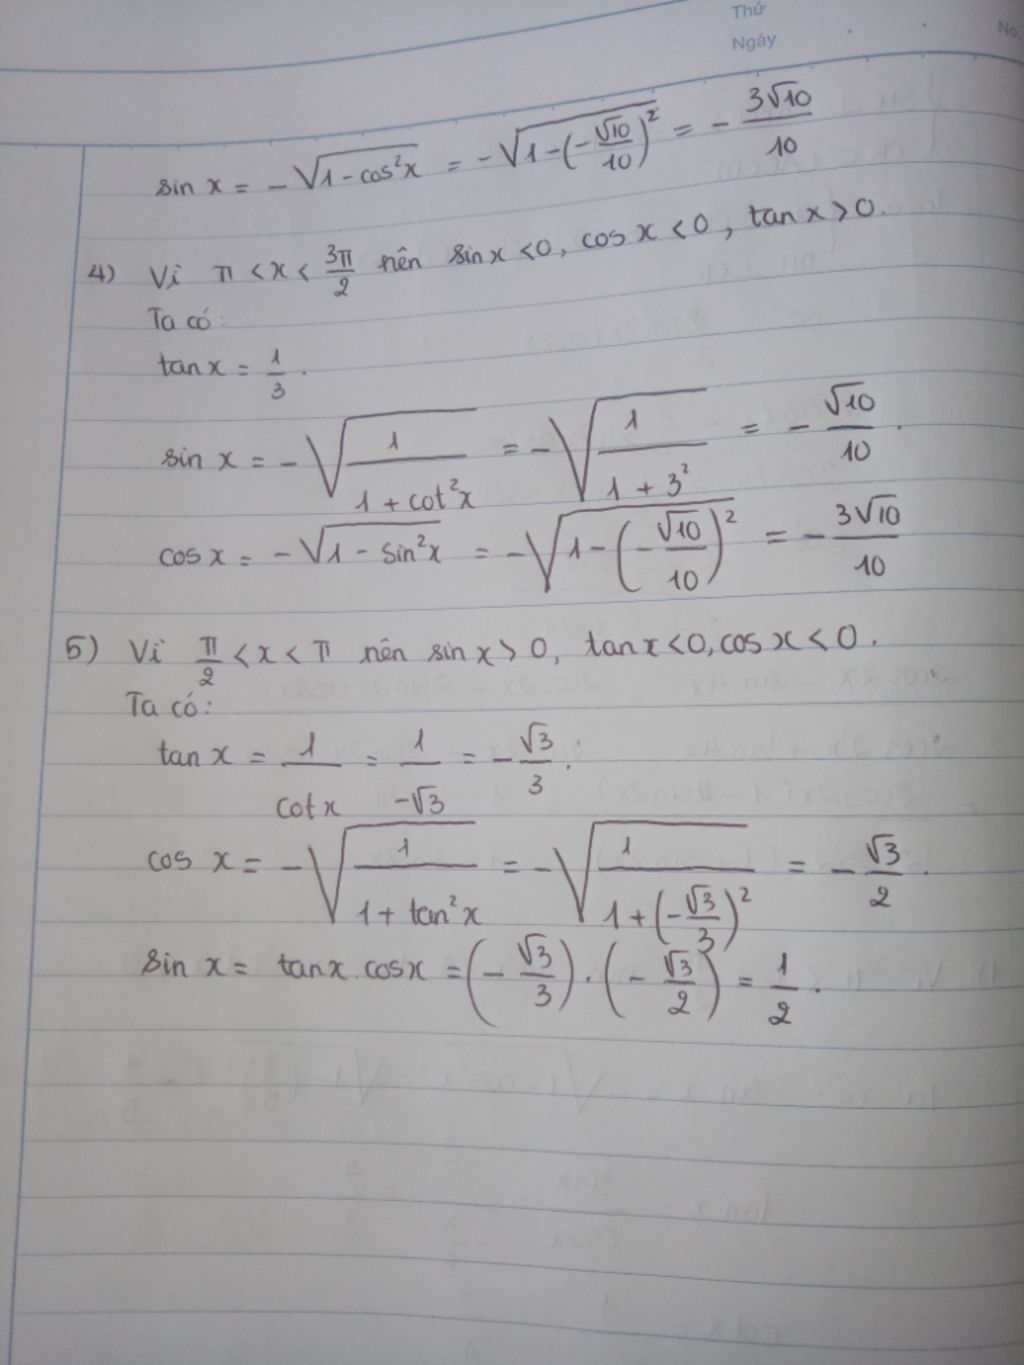 Thứ
Ngày
No.
sin x = -√(1 - cos²x) = -√(1 - (-√10/10)²) = - 3√10/10
4) Vì π < x < 3π/2 nên sin x < 0, cos x < 0, tan x > 0.
Ta có:
tan x = 1/3.
sin x = -√(1/(1 + cot²x)) = -√(1/(1 + 3²)) = - √10/10.
cos x = -√(1 - sin²x) = -√(1 - (-√10/10)²) = - 3√10/10
5) Vì π/2 < x < π nên sin x > 0, tan x < 0, cos x < 0.
Ta có:
tan x = 1/cot x = 1/-√3 = - √3/3.
cos x = -√(1/(1 + tan²x)) = -√(1/(1 + (-√3/3)²)) = - √3/2.
sin x = tan x . cos x = (- √3/3) . (- √3/2) = 1/2.